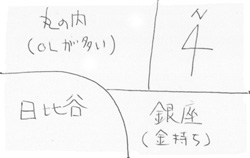 丸の内
(OLが多い)
N
日比谷
銀座
(金持ち)